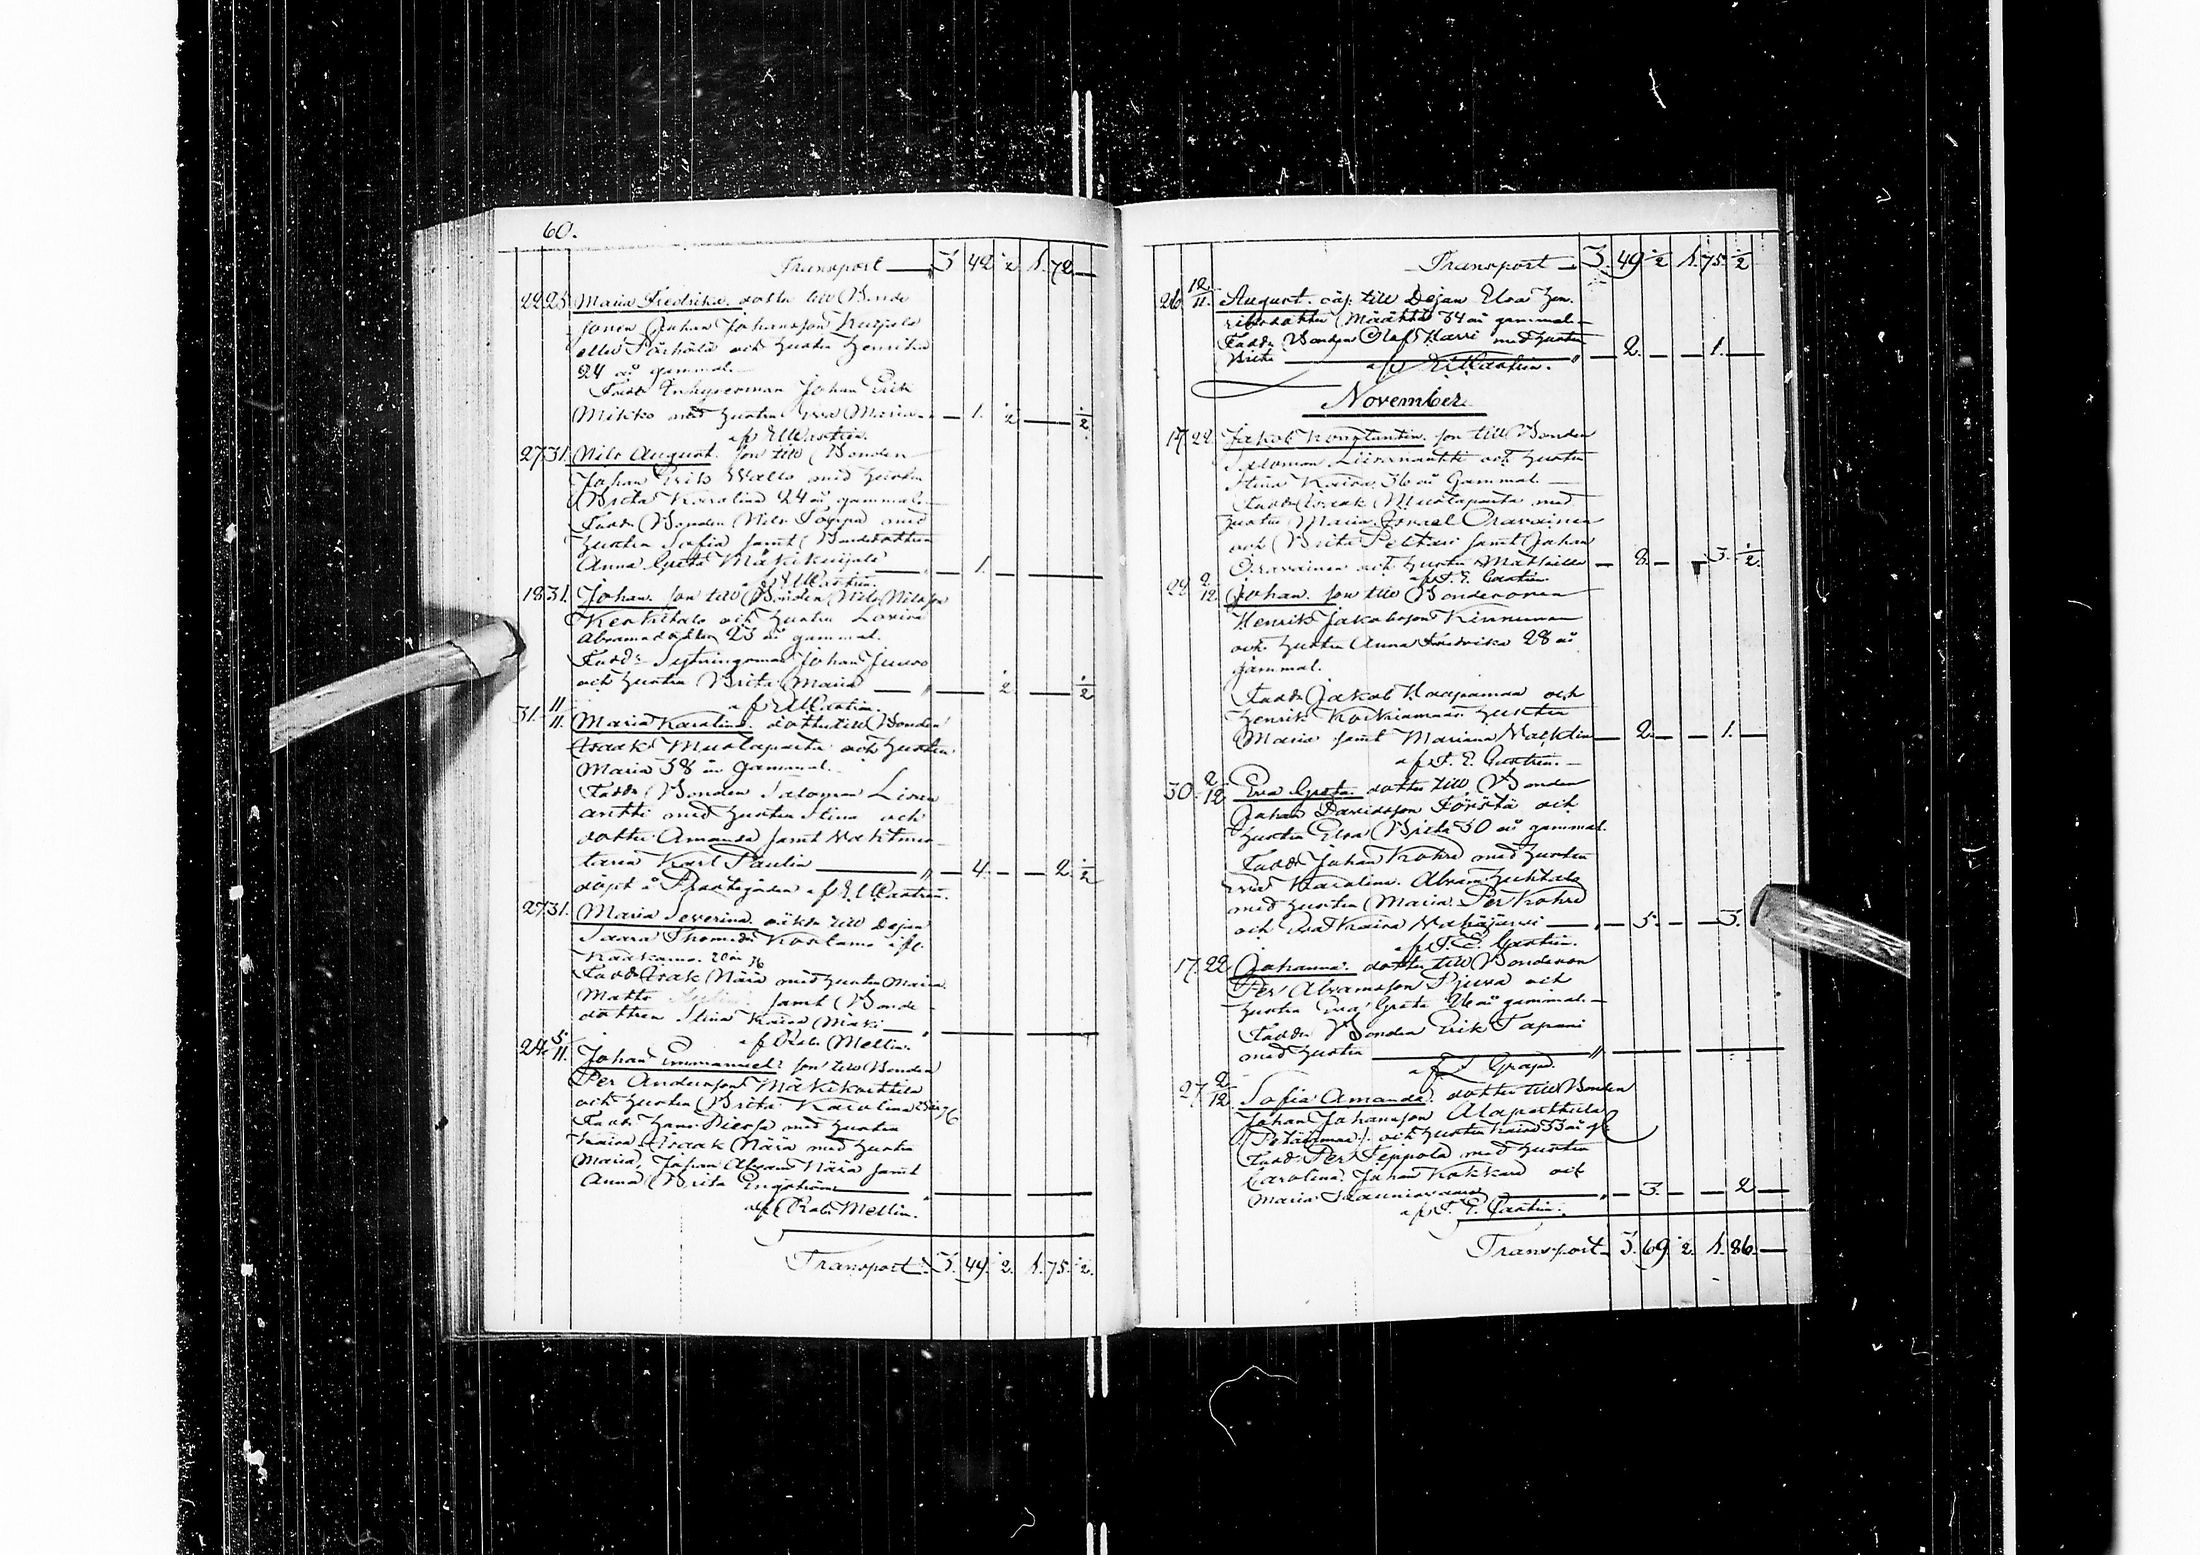 60.
Transport 3 42 ½ 1. 72
22 25. Maria Fredrika. dotter till Bonde
sonen Johan Johansson Kuijala
eller Pörhölä och hustru Henrika
24 år gammal.
Fadd: Inhysesman Johan Erik
Mikko med hustru Eva Maria 1. ½ ½
af E. U. Castrén.
27 31. Nils August. son till Bonden
Johan Erik Wallo med hustru
Brita Karolina 24 år gammal.
Fadd: Bonden Nils Poippa med
hustru Sofia samt Bondedottren
Anna Greta Mäkikuijala 1.
af E. U. Castrén.
18 31. Johan. son till Bonden Nils Nilsson
Keskitalo och hustru Lovisa
Abramsdotter 23 år gammal.
Fadd: Sytningsman Johan Juuso
och hustru Brita Maria ½ ½
af E. U. Castrén.
31. 11/11. Maria Karolina. dotter till Bonden
Isaak Mustaparta och hustru
Maria 38 år gammal.
Fadd: Bonden Salomon Liina
antti med hustru Stina och
dotter Amanda samt Vaktmäs
taren Karl Paulin 4. 2. ½
döpt å Prästgården af E. U. Castrén.
27 31. Maria Severina. oäkta till Dejan
Saara Thomasdr Kostamo i fl.
Kaakamo. 20 år
Fadd: Isak Närä med hustru Maria.
Matts samt Bonde
dottren Stina Kaisa Mäki
af Rob. Mellin.
24. 5/11. Johan Emmanuel. son till Bonden
Per Andersson Mäkikorttila
och hustru Brita Karolina
Fadd: Hans Piersa med hustru
Kaisa, Isaak Närä med hustru
Maria, Johan Abram Närä samt
Anna Brita Engström
af Rob. Mellin.
Transport 3. 49. ½. 1. 75. ½.
Transport 3. 49 ½ 1. 75. ½
26. 12./11. August. oäj. till Dejan Elsa Hen.
riksdotter Määttä 34 år gammal
Fadd: Bonden Olof Harri med hustru
Brita 2. 1.
af E. U. Castrén.
November
17. 22. Jakob Konstantin. son till Bonden
Salomon Liinanantti och hustru
Stina Kaisa 36 år Gammal.
Fadd: Isaak Mustaparta med
hustru Maria. Israel Oravainen
och Brita Peltari samt Johan
Oravainen och hustru Mathilda 8. 3. ½.
af F. E. Castrén.
29 2/12. Johan. son till Bondesonen
Henrik Jakobsson Kinnunen
och hustru Anna Fredrika 28 år
gammal.
Fadd: Jakob Kaapamaa och
Henrik Koskiamaas hustru
Maria samt Mariana 2. 1.
af F. E. Castrén.
30. 2/12. Eva Greta. dotter till Bonden
Johan Davidsson Törötä och
hustru Elsa Brita 30 år gammal.
Fadd: Johan Kohrå med hustru
Eva Karolina. Abram Huhtala
med hustru Maria. Per Kohrå
och Eva Kaisa 5. 3.
af F. E. Castrén.
17. 22. Johanna. dotter till Bondeson
Per Abramsson Pjura och
hustru Eva Greta 26 år gammal.
Fadd: Bonden Erik Tapani
med hustru
af Grape.
27. 2/12. Sofia Amanda. dotter till Bonden
Johan Johansson Alaporttila
och hustru Kaisa 33 år g
Fadd: Per Seppälä med hustru
Carolina. Johan Kokkare och
Maria 3. 2
af F. E. Castrén.
Transport 3. 69 ½. 1. 86.